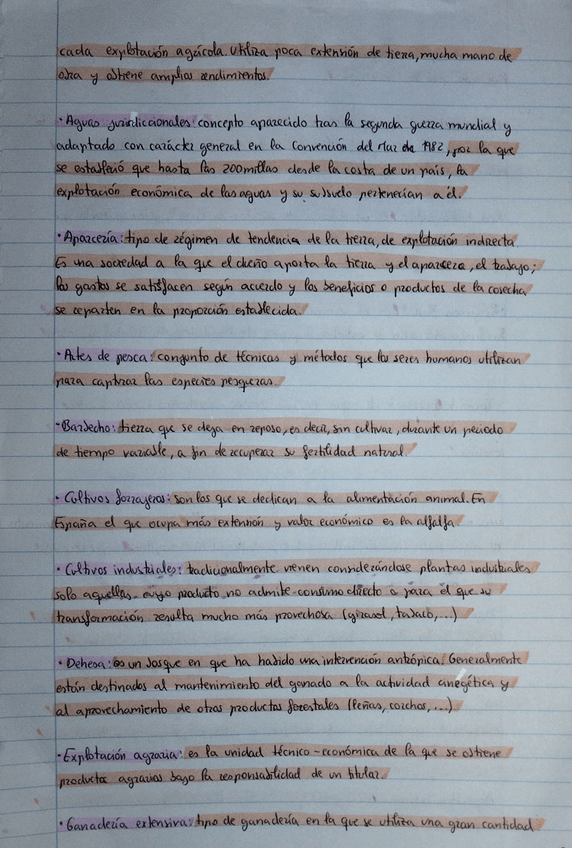 cada explotación agrícola. Utiliza poca extensión de tierra, mucha mano de
obra y obtiene amplios rendimientos.
· Aguas jurisdiccionales: concepto aparecido tras la segunda guerra mundial y
adaptado con carácter general en la Convención del Mar de 1982, por la que
se estableció que hasta las 200 millas desde la costa de un país, la
explotación económica de las aguas y su subsuelo pertenecían a él.
· Aparcería: tipo de régimen de tendencia de la tierra, de explotación indirecta
Es una sociedad a la que el dueño aporta la tierra y el aparcero, el trabajo;
los gastos se satisfacen según acuerdo y los beneficios o productos de la cosecha
se reparten en la proporción establecida.
· Artes de pesca: conjunto de técnicas y métodos que los seres humanos utilizan
para capturar las especies pesqueras.
· Barbecho: tierra que se deja en reposo, es decir, sin cultivar, durante un periodo
de tiempo variable, a fin de recuperar su fertilidad natural
· Cultivos forrajeros: son los que se dedican a la alimentación animal. En
España el que ocupa más extensión y valor económico es la alfalfa
· Cultivos industriales: tradicionalmente vienen considerándose plantas industriales
solo aquellas cuyo producto no admite consumo directo o para el que su
transformación resulta mucho más provechosa (girasol, tabaco,...)
· Dehesa: es un bosque en que ha habido una intervención antrópica. Generalmente
están destinados al mantenimiento del ganado a la actividad cinegética y
al aprovechamiento de otros productos forestales (leñas, corchos,...)
· Explotación agraria: es la unidad técnico-económica de la que se obtiene
productos agrarios bajo la responsabilidad de un titular.
· Ganadería extensiva: tipo de ganadería en la que se utiliza una gran cantidad